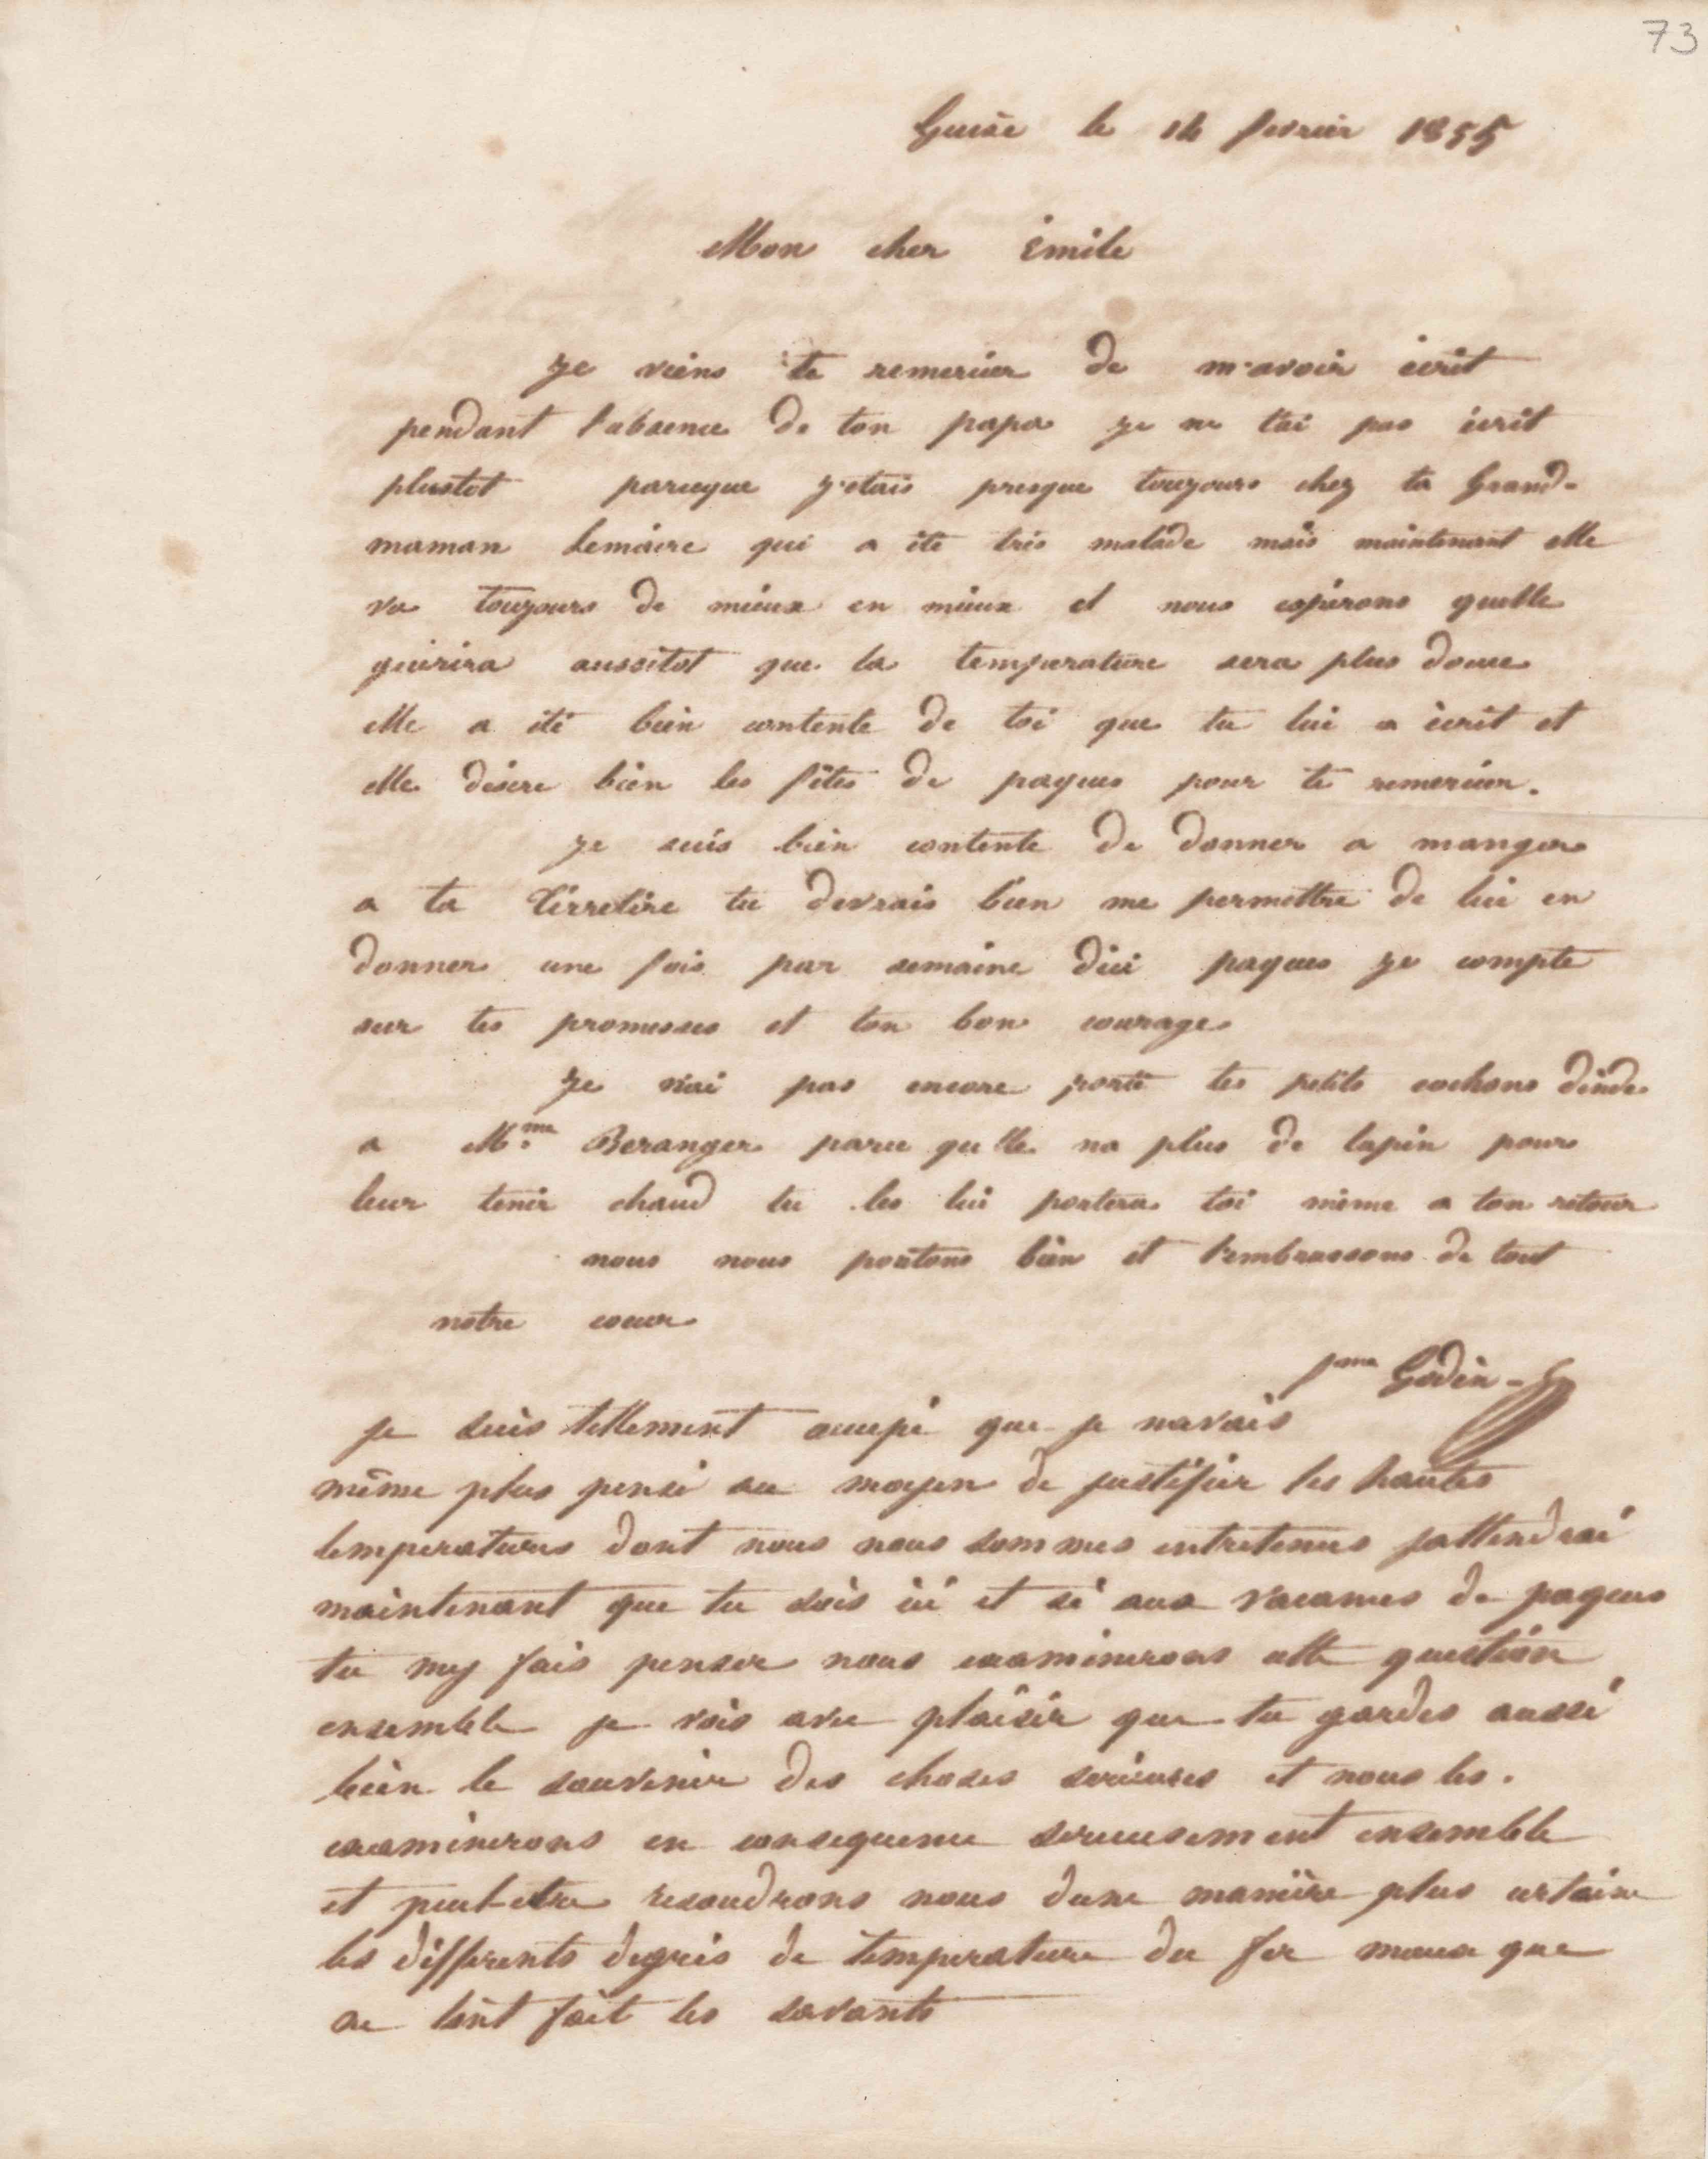 73
Guise le 14 fevrier 1855
Mon cher Emile
je viens te remercier de m'avoir écrit
pendant l'absence de ton papa je ne t'ai pas écrit
plustot parceque j'etais presque toujours chez ta Grand-
maman Lemaire qui a été très malade mais maintenant elle
va toujours de mieux en mieux et nous espérons quelle
guérira aussitot que la temperature sera plus douce
elle a été bien contente de toi que tu lui a écrit et
elle désire bien les fêtes de paques pour te remercier.
je suis bien contente de donner a manger
a ta tirrelire tu devrais bien me permettre de lui en
donner une fois par semaine dici paques je compte
sur tes promesses et ton bon courage
je n'ai pas encore porté tes petits cochons dinde
a Mme Beranger parce qu'elle na plus de lapin pour
leur tenir chaud tu les lui portera toi même a ton retour
nous nous portons bien et t'embrassons de tout
notre coeur
fme Godin-L
je suis tellement occupé que je navais
même plus pensé au moyen de justifier les hautes
temperatures dont nous nous sommes entretenus jattendrai
maintenant que tu sois ici et si aux vacances de paques
tu my fais penser nous examinerons cette question
ensemble je vois avec plaisir que tu gardes aussi
bien le souvenir des choses serieuses et nous les.
examinerons en consequence serieusement ensemble
et peut-etre resoudrons nous dune manière plus certaine
les differents degrés de temperature du fer mieux que
ne lont fait les savants